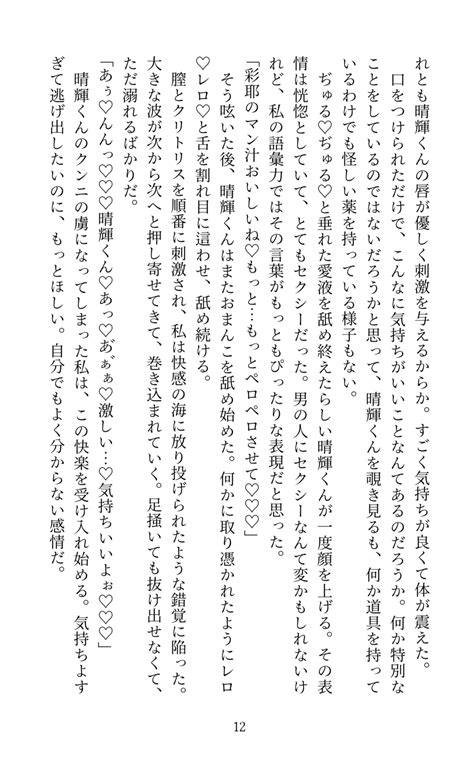 れとも晴輝くんの唇が優しく刺激を与えるからか。すごく気持ちが良くて体が震えた。
口をつけられただけで、こんなに気持ちがいいことなんてあるのだろうか。何か特別な
ことをしているのではないだろうかと思って、晴輝くんを覗き見るも、何か道具を持って
いるわけでも怪しい薬を持っている様子もない。
ぢゅる♡ぢゅる♡と垂れた愛液を舐め終えたらしい晴輝くんが一度顔を上げる。その表
情は恍惚としていて、とてもセクシーだった。男の人にセクシーなんて変かもしれないけ
れど、私の語彙力ではその言葉がもっともぴったりな表現だと思った。
「彩耶のマン汁おいしいね♡もっと…もっとペロペロさせて♡♡♡」
そう呟いた後、晴輝くんはまたおまんこを舐め始めた。何かに取り憑かれたようにレロ
♡レロ♡と舌を割れ目に這わせ、舐め続ける。
膣とクリトリスを順番に刺激され、私は快感の海に放り投げられたような錯覚に陥った。
大きな波が次から次へと押し寄せてきて、巻き込まれていく。足掻いても抜け出せなくて、
ただ溺れるばかりだ。
「あぅ♡んんっ♡♡♡晴輝くん♡あっ♡あ゛ぁぁ♡激しい…♡気持ちいいよぉ♡♡♡」
晴輝くんのクンニの虜になってしまった私は、この快楽を受け入れ始める。気持ちよす
ぎて逃げ出したいのに、もっとほしい。自分でもよく分からない感情だ。
12